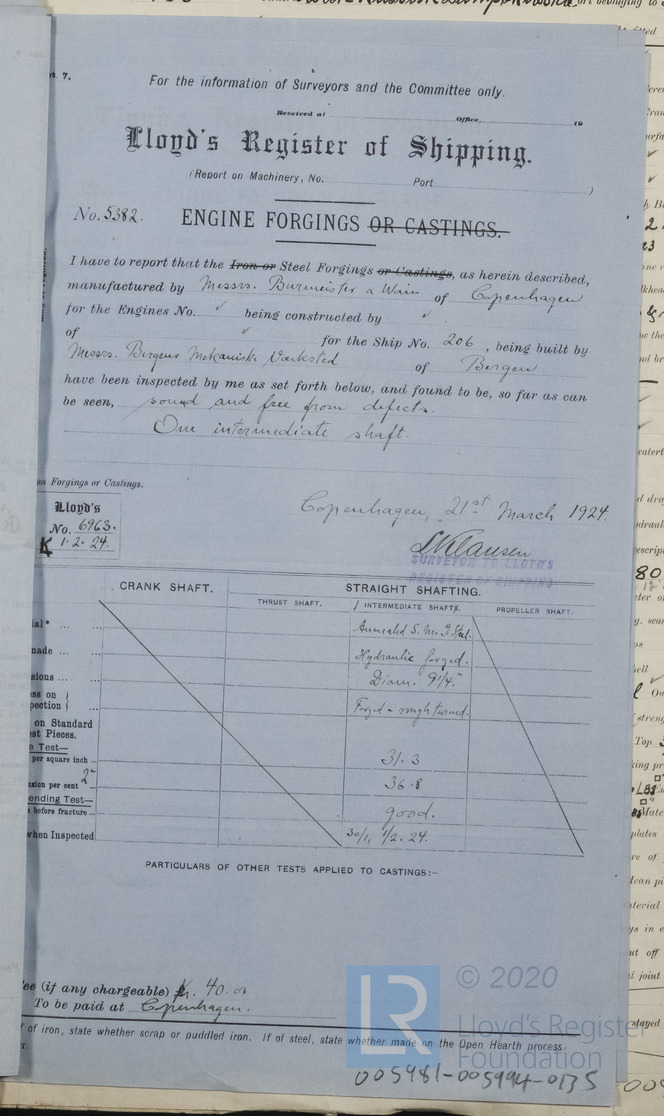 t. 7.
For the information of Surveyors and the Committee only.
Received at Office, 19
Lloyd's Register of Shipping.
(Report on Machinery, No. Port )
No. 5382. ENGINE FORGINGS OR CASTINGS.
I have to report that the Iron or Steel Forgings or Castings, as herein described,
manufactured by Messrs. Burmeister & Wain of Copenhagen
for the Engines No. ✓ being constructed by ✓
of ✓ for the Ship No. 206, being built by
Messrs. Bergens Mekaniske Værksted of Bergen
have been inspected by me as set forth below, and found to be, so far as can
be seen, sound and free from defects.
One intermediate shaft.
on Forgings or Castings.
Lloyd's
No. 6963.
K 1.2.24.
Copenhagen, 21st March 1924.
SURVEYOR TO LLOYD'S
REGISTER OF SHIPPING
CRANK SHAFT. STRAIGHT SHAFTING.
THRUST SHAFT. 1 INTERMEDIATE SHAFTS. PROPELLER SHAFT.
ial* ... ... Annealed S. M. I. Steel.
nade ... ... Hydraulic forged.
sions ... ... Diam. 9 1/4"
ss on }
pection } ... Forged & rough turned.
on Standard
st Pieces.
e Test—
per square inch ... 31.3
nsion per cent 2" ... 36.8
ending Test—
before fracture ... good.
when Inspected 30/1, 1/2.24.
PARTICULARS OF OTHER TESTS APPLIED TO CASTINGS:—
ee (if any chargeable) Kr. 40.00
To be paid at Copenhagen.
f of iron, state whether scrap or puddled iron. If of steel, state whether made on the Open Hearth process.
LR © 2020
Lloyd's Register
Foundation
005981-005994-0135